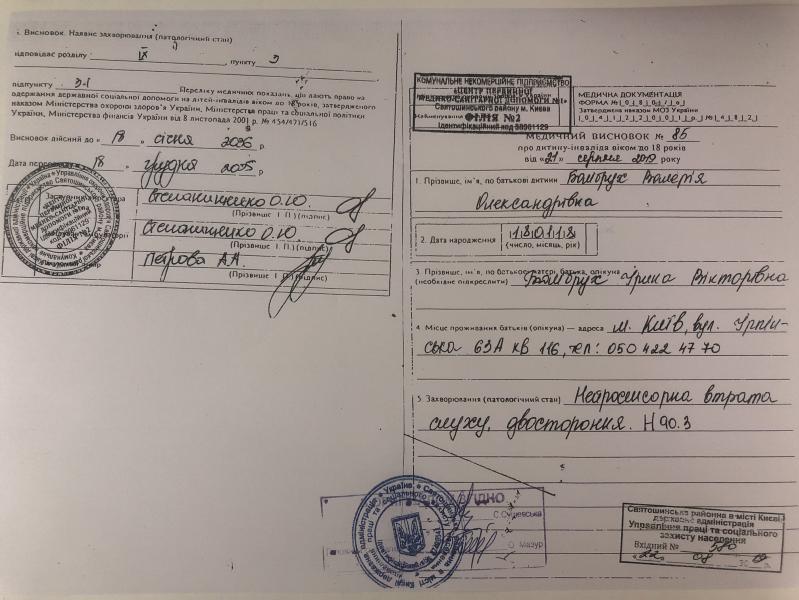 6. Висновок. Наявне захворювання (патологічний стан)
відповідає розділу IX , пункту 3
підпункту 3.1 Переліку медичних показань, що дають право на
одержання державної соціальної допомоги на дітей-інвалідів віком до 18 років, затвердженого
наказом Міністерства охорони здоров'я України, Міністерства праці та соціальної політики
України, Міністерства фінансів України від 8 листопада 2001 р. № 454/471/516
Висновок дійсний до „ 18 „ січня 2036 р.
Дата „ 18 „ грудня 2035 р.
Степанищенко О.Ю.
(Прізвище І. П.) (підпис)
Степанищенко О.Ю.
(Прізвище І. П.) (підпис)
Петрова А.А.
(Прізвище І. П.) (підпис)
КОМУНАЛЬНЕ НЕКОМЕРЦІЙНЕ ПІДПРИЄМСТВО
«ЦЕНТР ПЕРВИННОЇ
МЕДИКО-САНІТАРНОЇ ДОПОМОГИ №1»
Святошинського району м. Києва
ФІЛІЯ №2
Ідентифікаційний код 38961129
МЕДИЧНА ДОКУМЕНТАЦІЯ
ФОРМА №
Затверджена наказом МОЗ України
МЕДИЧНИЙ ВИСНОВОК № 85
про дитину-інваліда віком до 18 років
від «21» серпня 2019 року
1. Прізвище, ім'я, по батькові дитини Валерія
Олександрівна
2. Дата народження 180118
(число, місяць, рік)
3. Прізвище, ім'я, по батькові матері, батька, опікуна Ірина Вікторівна
(необхідне підкреслити)
4 Місце проживання батьків (опікуна) — адреса м. Київ, вул. Ірпін-
ська 63А кв 116, тел: 050 422 47 70
5. Захворювання (патологічний стан) Нейросенсорна втрата
слуху, двостороння. Н 90.3
С.Сушевська
О. Мазур
Святошинська районна в місті Києві
державна адміністрація
Управління праці та соціального
захисту населення
Вхідний № 580
«22» 08 19